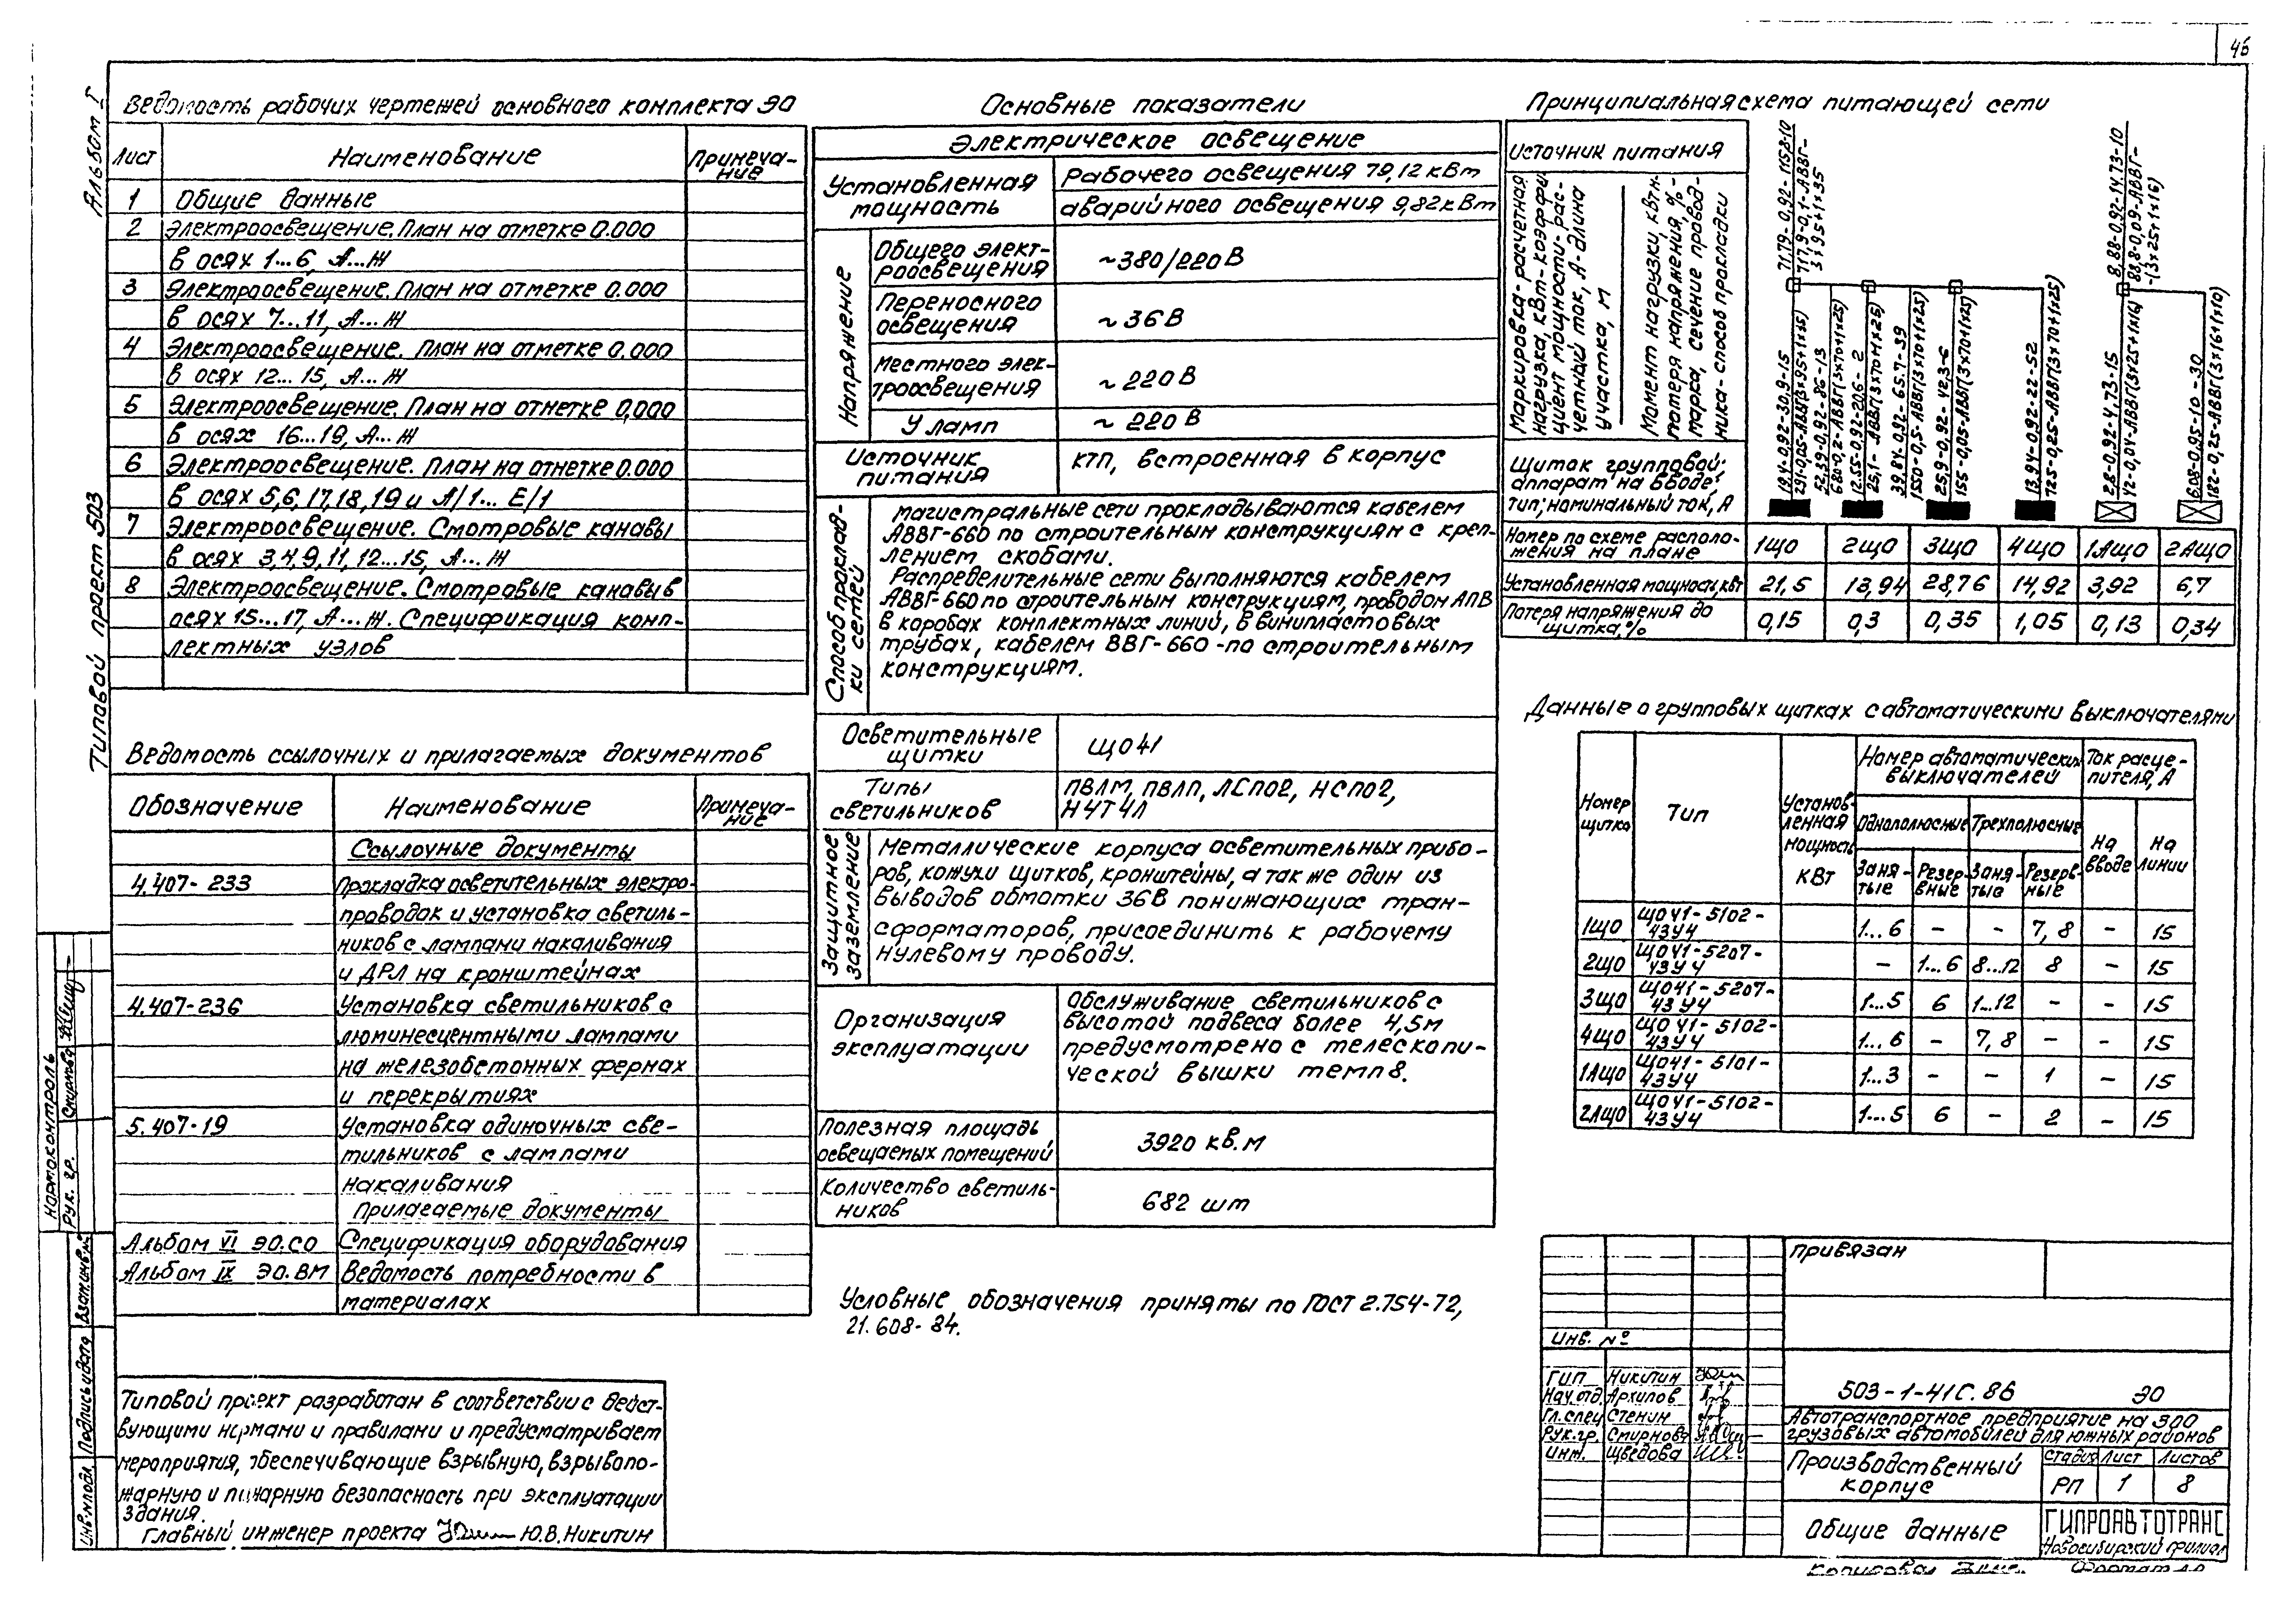 46
Альбом I
Типовой проект 503
Ведомость рабочих чертежей основного комплекта ЭО
Лист
Наименование
Примеча-
ние
1
Общие данные
2
Электроосвещение. План на отметке 0.000
в осях 1...6, А...Ж
3
Электроосвещение. План на отметке 0.000
в осях 7...11, А...Ж
4
Электроосвещение. План на отметке 0.000
в осях 12...15, А...Ж
5
Электроосвещение. План на отметке 0,000
в осях 16...19, А...Ж
6
Электроосвещение. План на отметке 0.000
в осях 5,6,17,18,19 и А/1... Е/1
7
Электроосвещение. Смотровые канавы
в осях 3,4,9,11,12...15, А...Ж
8
Электроосвещение. Смотровые канавы в
осях 15...17, А...Ж. Спецификация комп-
лектных узлов
Ведомость ссылочных и прилагаемых документов
Обозначение
Наименование
Примеча-
ние
Ссылочные документы
4.407-233
Прокладка осветительных электро-
проводок и установка светиль-
ников с лампами накаливания
и ДРЛ на кронштейнах
4.407-236
Установка светильников с
люминесцентными лампами
на железобетонных фермах
и перекрытиях
5.407-19
Установка одиночных све-
тильников с лампами
накаливания
Прилагаемые документы
Альбом VI ЭО.СО
Спецификация оборудования
Альбом IX ЭО.ВМ
Ведомость потребности в
материалах
Типовой проект разработан в соответствии с дейст-
вующими нормами и правилами и предусматривает
мероприятия, обеспечивающие взрывную, взрывопо-
жарную и пожарную безопасность при эксплуатации
здания.
Главный инженер проекта Ю.В. Никитин
Нормоконтроль
Рук. гр.
Смирнова
Взам.инв.№
Подпись и дата
Инв.№подл.
Основные показатели
Электрическое освещение
Установленная
мощность
Рабочего освещения 79,12 кВт
аварийного освещения 9,82 кВт
Напряжение
Общего элект-
роосвещения
~380/220 В
Переносного
освещения
~36 В
Местного элек-
троосвещения
~220 В
У ламп
~220 В
Источник
питания
КТП, встроенная в корпус
Способ проклад-
ки сетей
Магистральные сети прокладываются кабелем
АВВГ-660 по строительным конструкциям с креп-
лением скобами.
Распределительные сети выполняются кабелем
АВВГ-660 по строительным конструкциям, проводом АПВ
в коробах комплектных линий, в винипластовых
трубах, кабелем ВВГ-660 -по строительным
конструкциям.
Осветительные
щитки
ЩО41
Типы
светильников
ПВЛМ, ПВЛП, ЛСПО2, НСПО2,
Н4Т4Л
Защитное
заземление
Металлические корпуса осветительных прибо-
ров, кожухи щитков, кронштейны, а так же один из
выводов обмотки 36В понижающих тран-
сформаторов, присоединить к рабочему
нулевому проводу.
Организация
эксплуатации
Обслуживание светильников с
высотой подвеса более 4,5м
предусмотрено с телескопи-
ческой вышки темп 8.
Полезная площадь
освещаемых помещений
3920 кв.м
Количество светиль-
ников
682 шт
Условные обозначения приняты по ГОСТ 2.754-72,
21.608-84.
Принципиальная схема питающей сети
Источник питания
Маркировка-расчетная
нагрузка, кВт-коэффи-
циент мощности-рас-
четный ток, А-длина
участка, м
Момент нагрузки, кВт·м-
потеря напряжения, %-
марка, сечение провод-
ника-способ прокладки
71,79-0,92-115,8-10
717,9-0,1-АВВГ-
3×95+1×35
8,88-0,92-14,73-10
88,8-0,09-АВВГ-
-(3×25+1×16)
19,4-0,92-30,9-15
291-0,05-АВВГ(3×95+1×35)
52,39-0,92-86-13
680-0,2-АВВГ(3×70+1×25)
12.55-0.92-20.6-2
25,1-АВВГ(3×70+1×25)
39,84-0,92-65.7-39
1550-0,5-АВВГ(3×70+1×25)
25,9-0,92-42,3-6
155-0,05-АВВГ(3×70+1×25)
13,94-0,92-22-52
725-0,25-АВВГ(3×70+1×25)
2.8-0,92-4,73-15
42-0,04-АВВГ(3×25+1×16)
6.08-0,95-10-30
182-0,25-АВВГ(3×16+1×10)
Щиток групповой;
аппарат на вводе;
тип; номинальный ток, А
Номер по схеме располо-
жения на плане
1ЩО 2ЩО 3ЩО 4ЩО 1АЩО 2АЩО
Установленная мощность, кВт
21,5 13,94 28,76 14,92 3,92 6,7
Потеря напряжения до
щитка, %
0,15 0,3 0,35 1,05 0,13 0,34
Данные о групповых щитках с автоматическими выключателями
Номер
щитка
Тип
Установ-
ленная
мощность
кВт
Номер автоматических
выключателей
Ток расце-
пителя, А
Однополюсные
Трехполюсные
На
вводе
На
линии
Заня-
тые
Резер-
вные
Заня-
тые
Резерв-
ные
1ЩО ЩО41-5102-43У4 1...6 - - 7, 8 - 15
2ЩО ЩО41-5207-43У4 - 1...6 8...12 8 - 15
3ЩО ЩО41-5207-43У4 1...5 6 1...12 - - 15
4ЩО ЩО41-5102-43У4 1...6 - 7, 8 - - 15
1АЩО ЩО41-5101-43У4 1...3 - - 1 - 15
2АЩО ЩО41-5102-43У4 1...5 6 - 2 - 15
Привязан
Инв. №
ГИП Никитин
Нач.отд. Архипов
Гл.спец Стенин
Рук.гр. Смирнова
Инж. Щведова
503-1-41С.86 ЭО
Автотранспортное предприятие на 300
грузовых автомобилей для южных районов
Производственный
корпус
Стадия Лист Листов
РП 1 8
Общие данные
ГИПРОАВТОТРАНС
Новосибирский филиал
Копировал
Формат